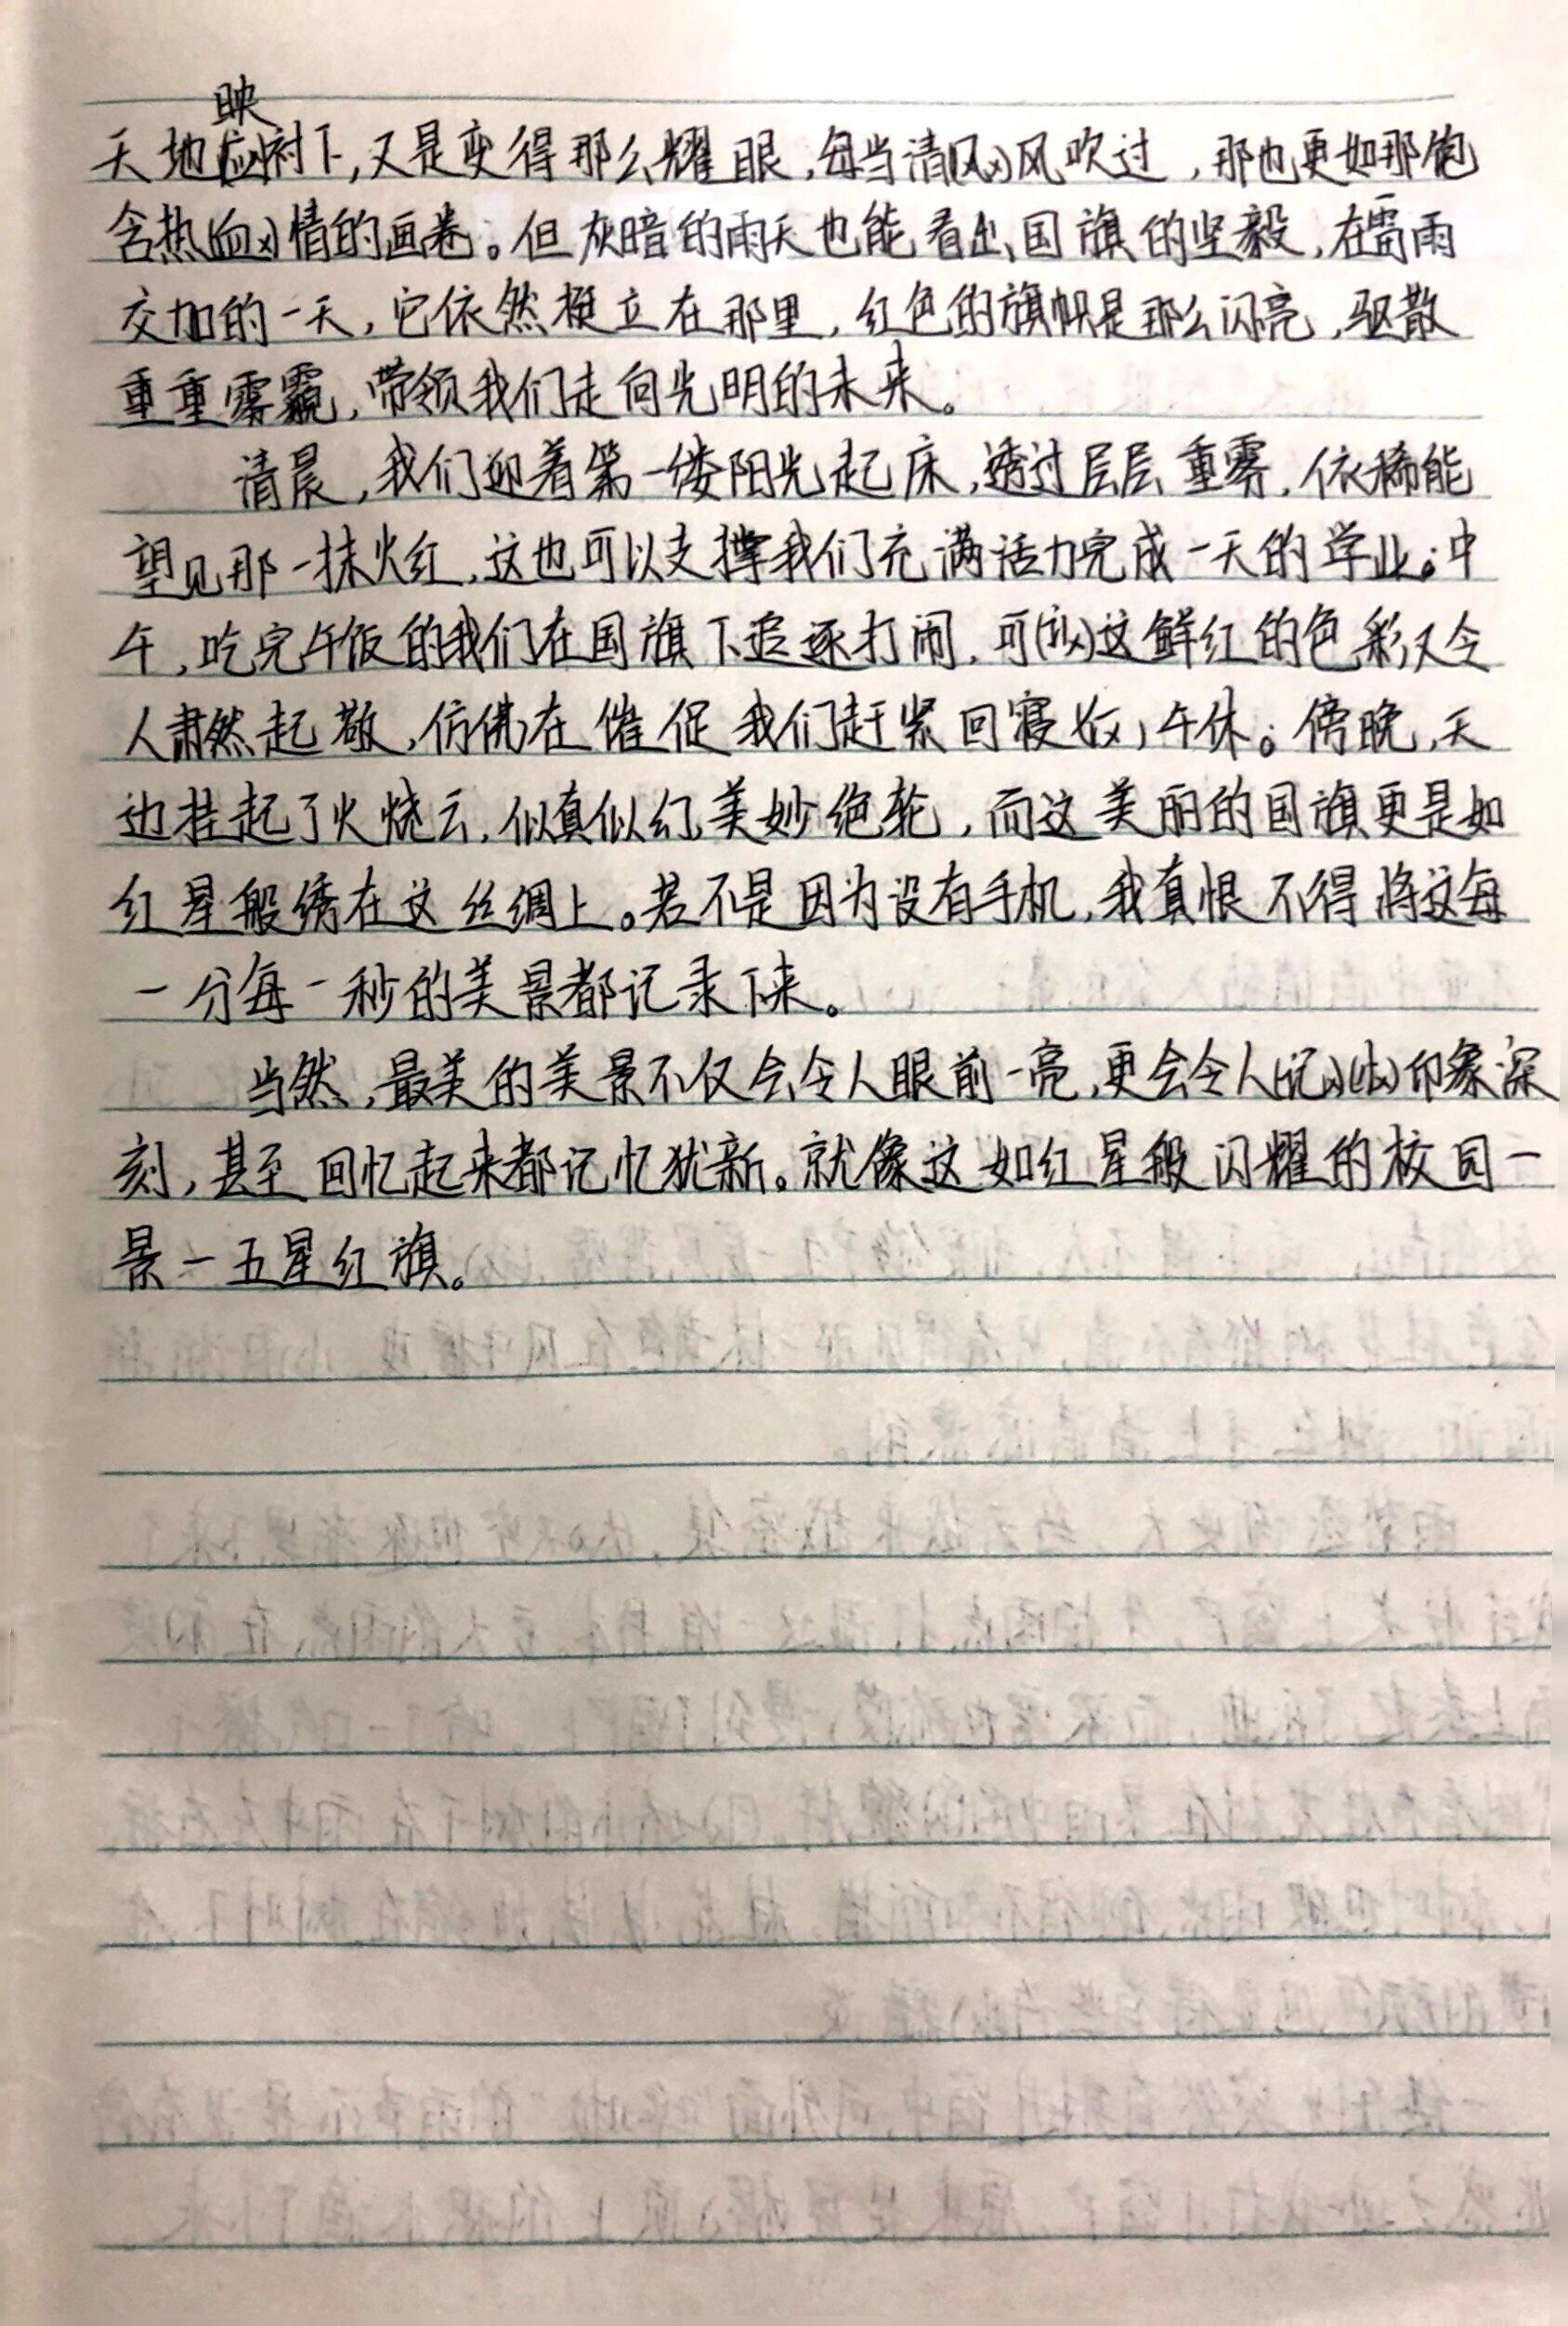 天地映衬下,又是变得那么耀眼,每当清风吹过,那也更如那饱
含热情的画卷。但灰暗的雨天也能看出国旗的坚毅,在雷雨
交加的一天,它依然挺立在那里,红色的旗帜是那么闪亮,驱散
重重雾霾,带领我们走向光明的未来。
清晨,我们迎着第一缕阳光起床,透过层层重雾,依稀能
望见那一抹火红,这也可以支撑我们充满活力完成一天的学业;中
午,吃完午饭的我们在国旗下追逐打闹,可这鲜红的色彩又令
人肃然起敬,仿佛在催促我们赶紧回寝午休。傍晚,天
边挂起了火烧云,似真似幻,美妙绝轮,而这美丽的国旗更是如
红星般绣在这丝绸上。若不是因为没有手机,我真恨不得将这每
一分每一秒的美景都记录下来。
当然,最美的美景不仅会令人眼前一亮,更会令人印象深
刻,甚至回忆起来都记忆犹新。就像这如红星般闪耀的校园一
景—五星红旗。